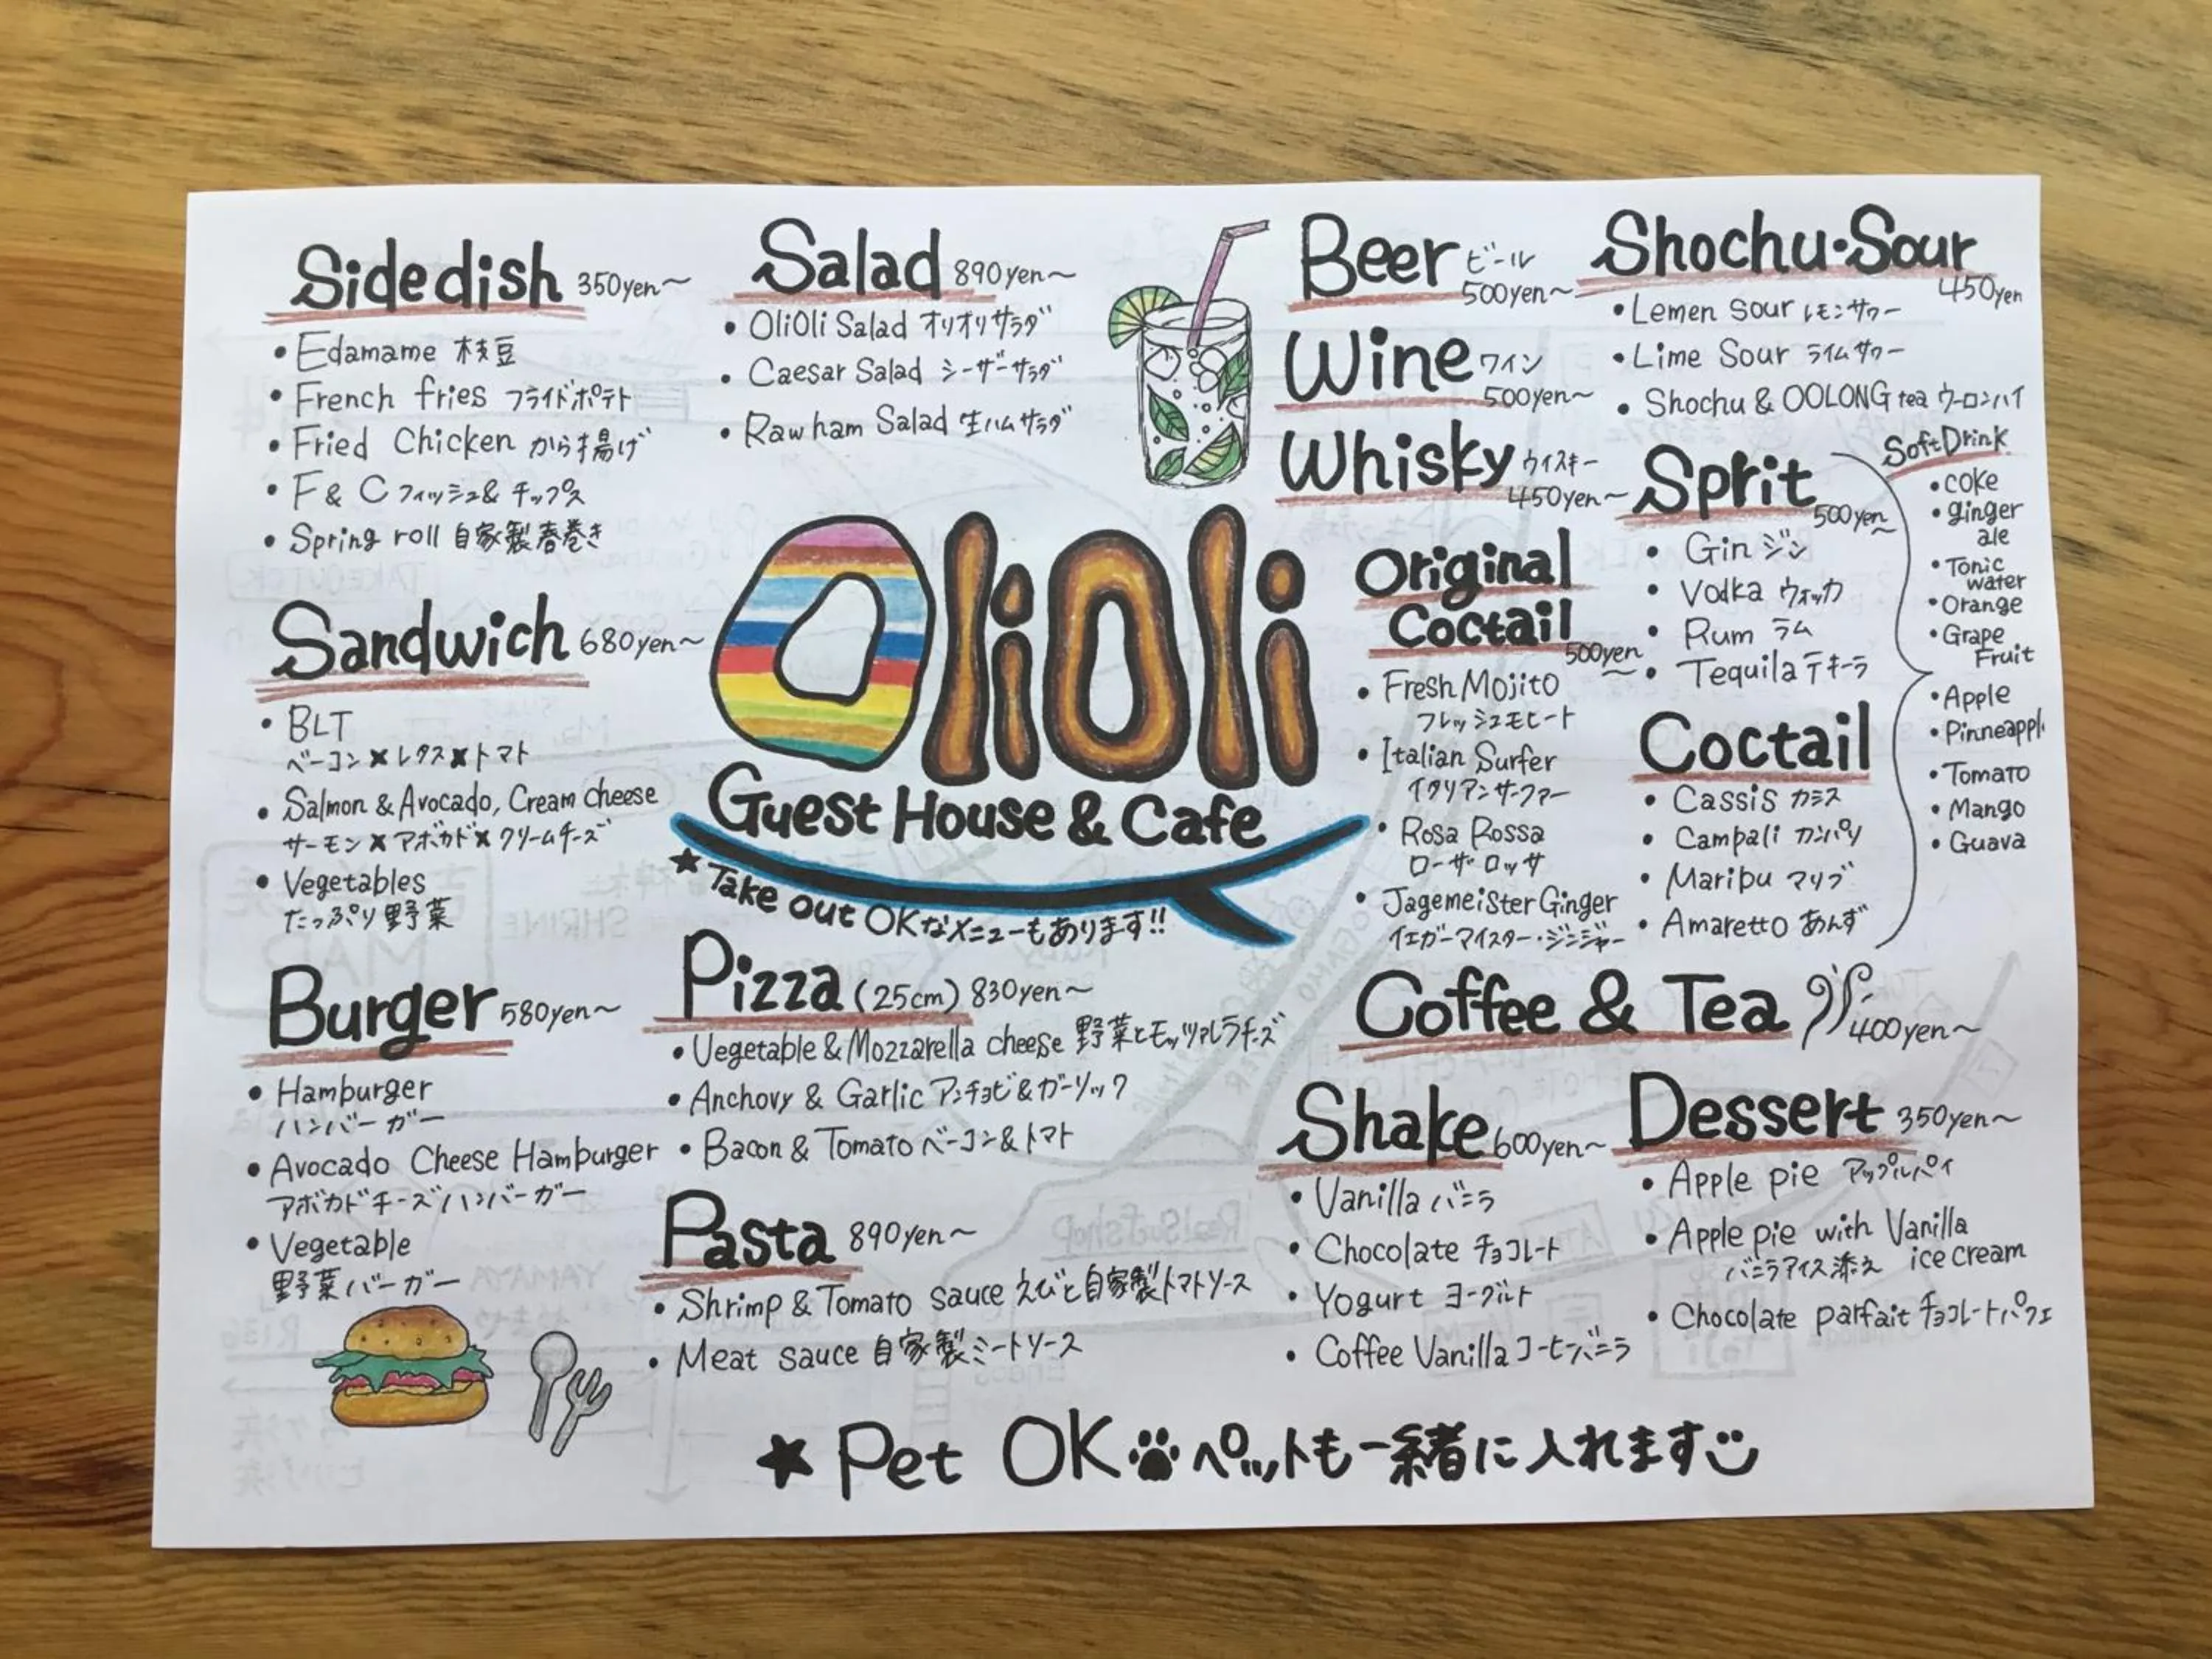 Sidedish 350yen～
・Edamame 枝豆
・French fries フライドポテト
・Fried Chicken から揚げ
・F & C フィッシュ&チップス
・Spring roll 自家製春巻き
Sandwich 680yen～
・BLT
ベーコン×レタス×トマト
・Salmon & Avocado, Cream cheese
サーモン×アボカド×クリームチーズ
・Vegetables
たっぷり野菜
Burger 580yen～
・Hamburger
ハンバーガー
・Avocado Cheese Hamburger
アボカドチーズハンバーガー
・Vegetable
野菜バーガー
Salad 890yen～
・OliOli Salad オリオリサラダ
・Caesar Salad シーザーサラダ
・Raw ham Salad 生ハムサラダ
OliOli
Guest House & Cafe
★Take out OKなメニューもあります!!
Pizza (25cm) 830yen～
・Vegetable & Mozzarella cheese 野菜とモッツァレラチーズ
・Anchovy & Garlic アンチョビ&ガーリック
・Bacon & Tomato ベーコン&トマト
Pasta 890yen～
・Shrimp & Tomato sauce えびと自家製トマトソース
・Meat sauce 自家製ミートソース
Beer ビール
500yen～
Wine ワイン
500yen～
Whisky ウイスキー
450yen～
Original
Coctail
500yen～
・Fresh Mojito
フレッシュモヒート
・Italian Surfer
イタリアンサーファー
・Rosa Rossa
ローザロッサ
・Jagemeister Ginger
イエガーマイスター・ジンジャー
Shochu・Sour
450yen
・Lemen Sour レモンサワー
・Lime Sour ライムサワー
・Shochu & OOLONG tea ウーロンハイ
Sprit
500yen～
・Gin ジン
・Vodka ウォッカ
・Rum ラム
・Tequila テキーラ
Coctail
・Cassis カシス
・Campali カンパリ
・Maribu マリブ
・Amaretto あんず
Soft Drink
・coke
・ginger
ale
・Tonic
water
・Orange
・Grape
Fruit
・Apple
・Pinneappl
・Tomato
・Mango
・Guava
Coffee & Tea 400yen～
Shake 600yen～
・Vanilla バニラ
・Chocolate チョコレート
・Yogurt ヨーグルト
・Coffee Vanilla コーヒーバニラ
Dessert 350yen～
・Apple pie アップルパイ
・Apple pie with Vanilla
ice cream
バニラアイス添え
・Chocolate parfait チョコレートパフェ
★Pet OK ペットも一緒に入れます